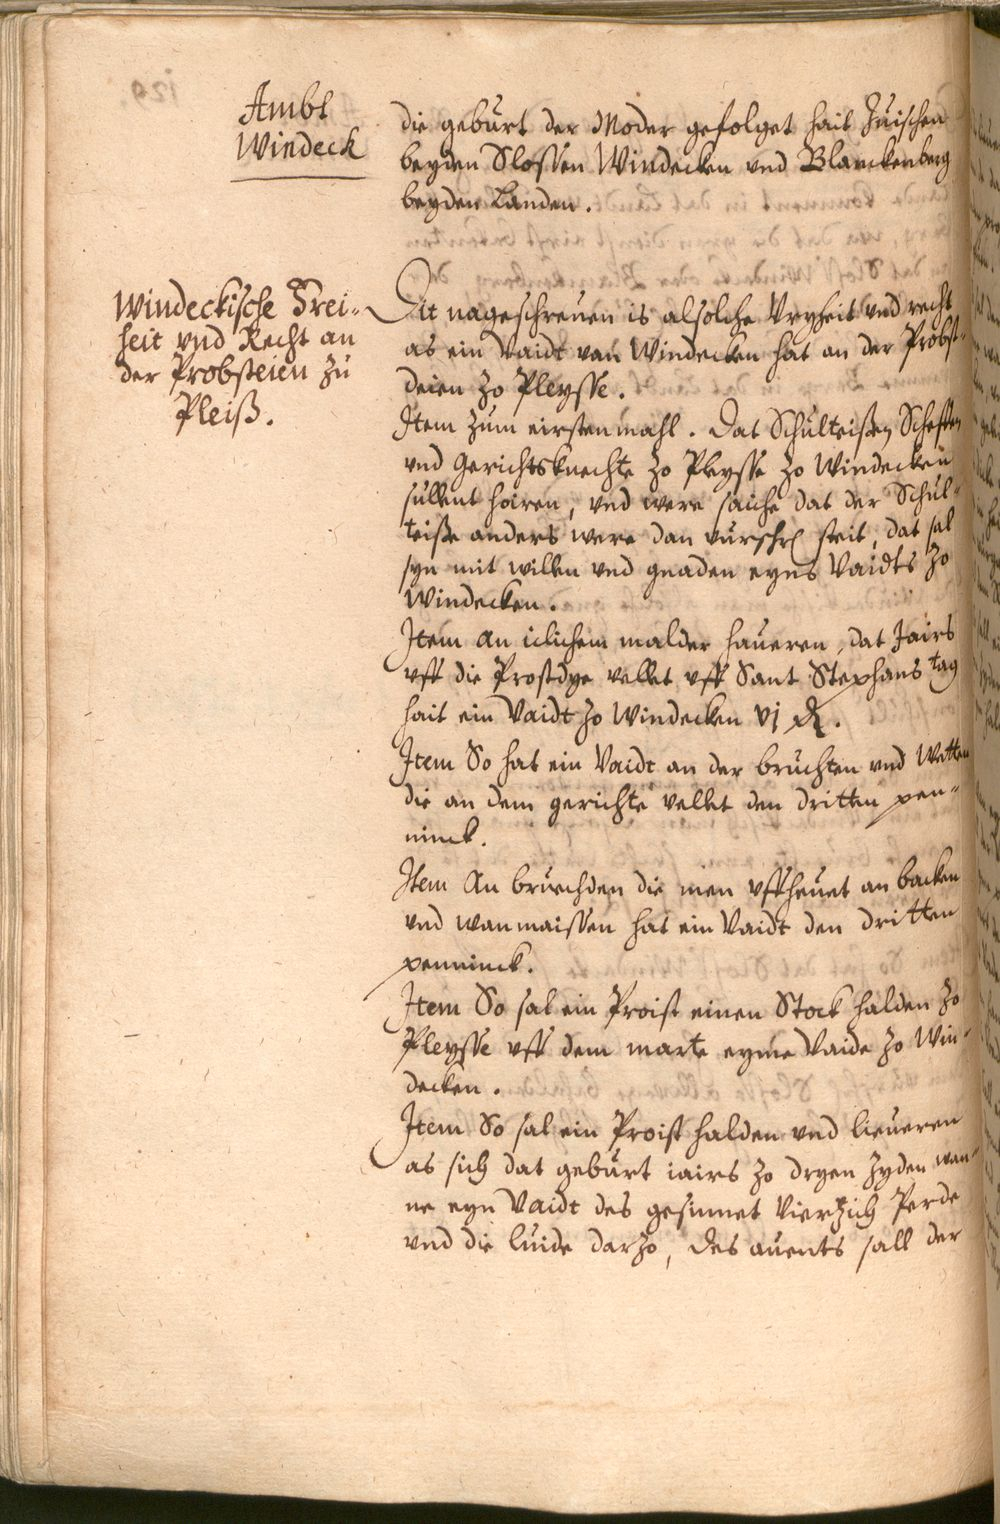 Ambt
Windeck
die geburt der Moder gefolget hait zuischen
beyden Slossen Windecken vnd Blanckenberg
beyden Landen.
Windeckische Frei-
heit vnd Recht an
der Probsteien zu
Pleiß.
Dit nageschreuen is alsolche Vryheit vnd recht
as ein Vaidt van Windecken hat an der Probst-
deien zo Pleysse.
Item zum eirstenmahl. Dat Schulteißen Scheffen
vnd Gerichtsknechte zo Pleysse zo Windecken
sullent hoiren, vnd were saiche dat der Schul-
teisse anders were dan vurschr steit, dat sal
syn mit willen vnd gnaden eyns Vaidts zo
Windecken.
Item an iclichem malder haueren, dat Jairs
vff die Prostdye vellet vff Sant Stephans tag
hait ein Vaidt zo Windecken vj d.
Item So hat ein Vaidt an der bruchten vnd Wetten
die an dem gerichte vellet den dritten pen-
ninck.
Item An bruechden die men vffheuet an backen
vnd wanmaissen hat ein Vaidt den dritten
penninck.
Item So sal ein Proist einen Stock halden zo
Pleysse vff dem marte eyme Vaide zo Win-
decken.
Item So sal ein Proist halden vnd lieueren
as sich dat geburt iairs zo dryen zyden wan-
ne eyn Vaidt des gesinnet Viertzich Perde
vnd die luide darzo, des auents sall der